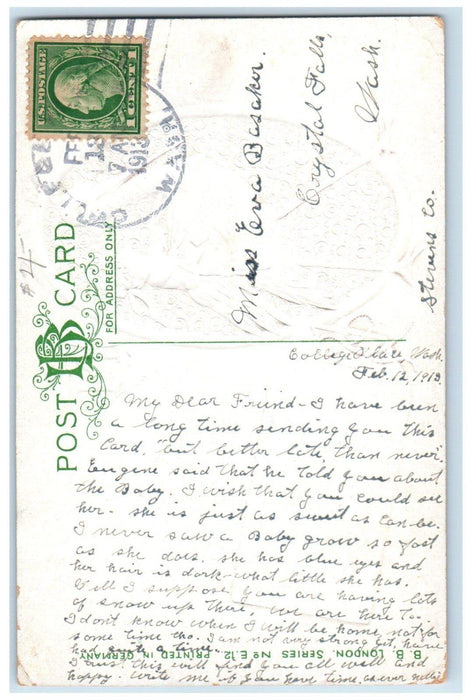 U.S. POSTAGE
1 CENT 1
COLLEGE
FEB
13
7 AM
1913
WASH.
#4-
POST CARD
BB
FOR ADDRESS ONLY
Miss Eva Basaker.
Crystal Falls,
Wash.
Stevens Co.
College Place, Wash.
Feb. 12, 1913.
My Dear Friend - I have been
a long time sending you this
Card, "but better late, than never"
Eugene said that he told you about
the Baby. I wish that you could see
her - she is just as sweet as can be.
I never saw a Baby grow so fast
as she does. she has blue eyes and
her hair is dark - what little she has.
Well I suppose you are having lots
of snow up there, we are here to.
I don't know when I will be home, not for
some time tho. I am not very strong yet, have
had quite a time.
I trust this will find you all well and
happy. Write me if you have time, as ever Nellie
B. B. LONDON. SERIES No E.12 PRINTED IN GERMANY